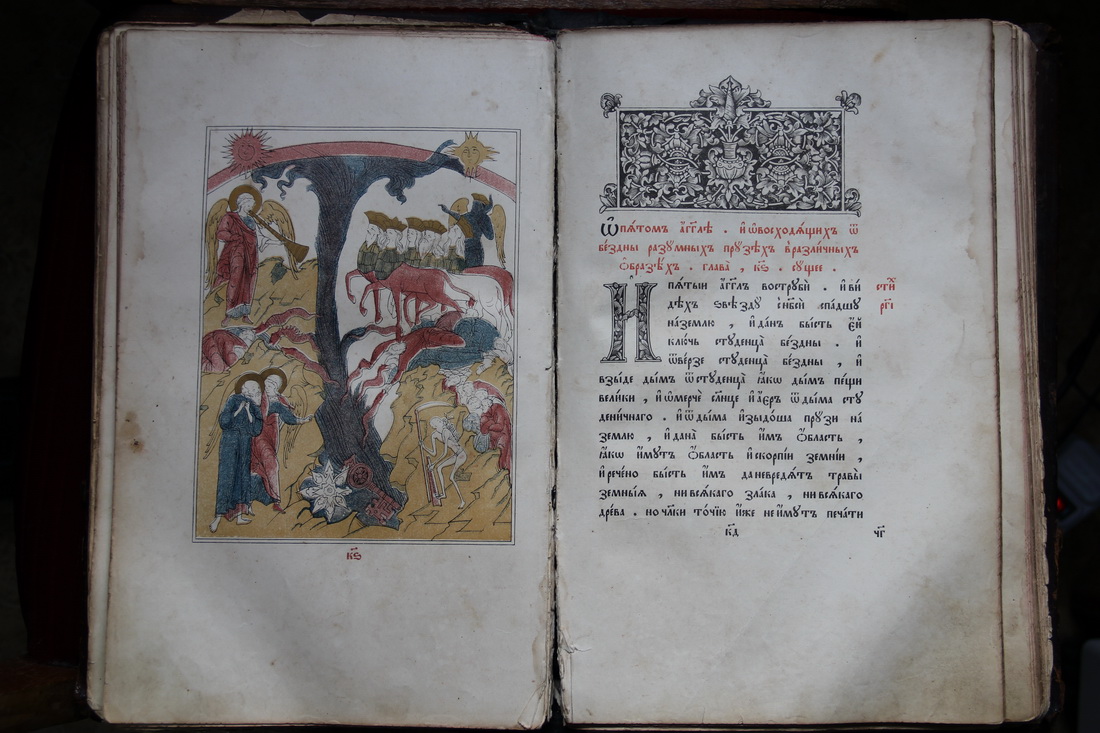 к҃ѕ
Ѡ пѧ́томъ а҆́гг҃лѣ . и҆ ѡ҆восходѧ́щихъ ѿ
бе́здны разꙋ́мныхъ прꙋзѣ́хъ вразли́чныхъ
ѻ҆́бразѣхъ . глава̀ , к҃ѕ . сꙋ́щее .
И҆ пѧ́тыи а҆́гг҃лъ вострꙋбѝ . и҆ ви́
дѣхъ ѕвѣздꙋ̀ с̾нб҃сѐ спа́дшꙋ
на́землю , и҆ да́нъ бы́сть є҆́й
клю́чь стꙋденца̀ бе́здны . и҆
ѿве́рзе стꙋденца̀ бе́здны , и҆
взы́де ды́мъ ѿстꙋденца̀ ꙗ҆́кѡ ды́мъ пе́щи
вели́ки , и҆ ѡ҆ме́рче сл҃нце и҆ а҆́еръ ѿды́ма стꙋ
дени́чнаго . и҆ ѿды́ма и҆зыдо́ша прꙋ́зи на́
землю , и҆ дана̀ бы́сть и҆̀мъ ѻ҆́бласть ,
ꙗ҆́кѡ и҆́мꙋтъ ѻ҆́бласть и҆ скорпі́и земні́и ,
и҆ рече́но бы́сть и҆̀мъ даневредѧ́тъ травы̀
земны́ѧ , нивсѧ́каго зла́ка , нивсѧ́каго
дре́ва . но чл҃ки то́чїю и҆̀же неи҆́мꙋтъ печа́ти
сти́х
рг҃і
к҃д
чг҃